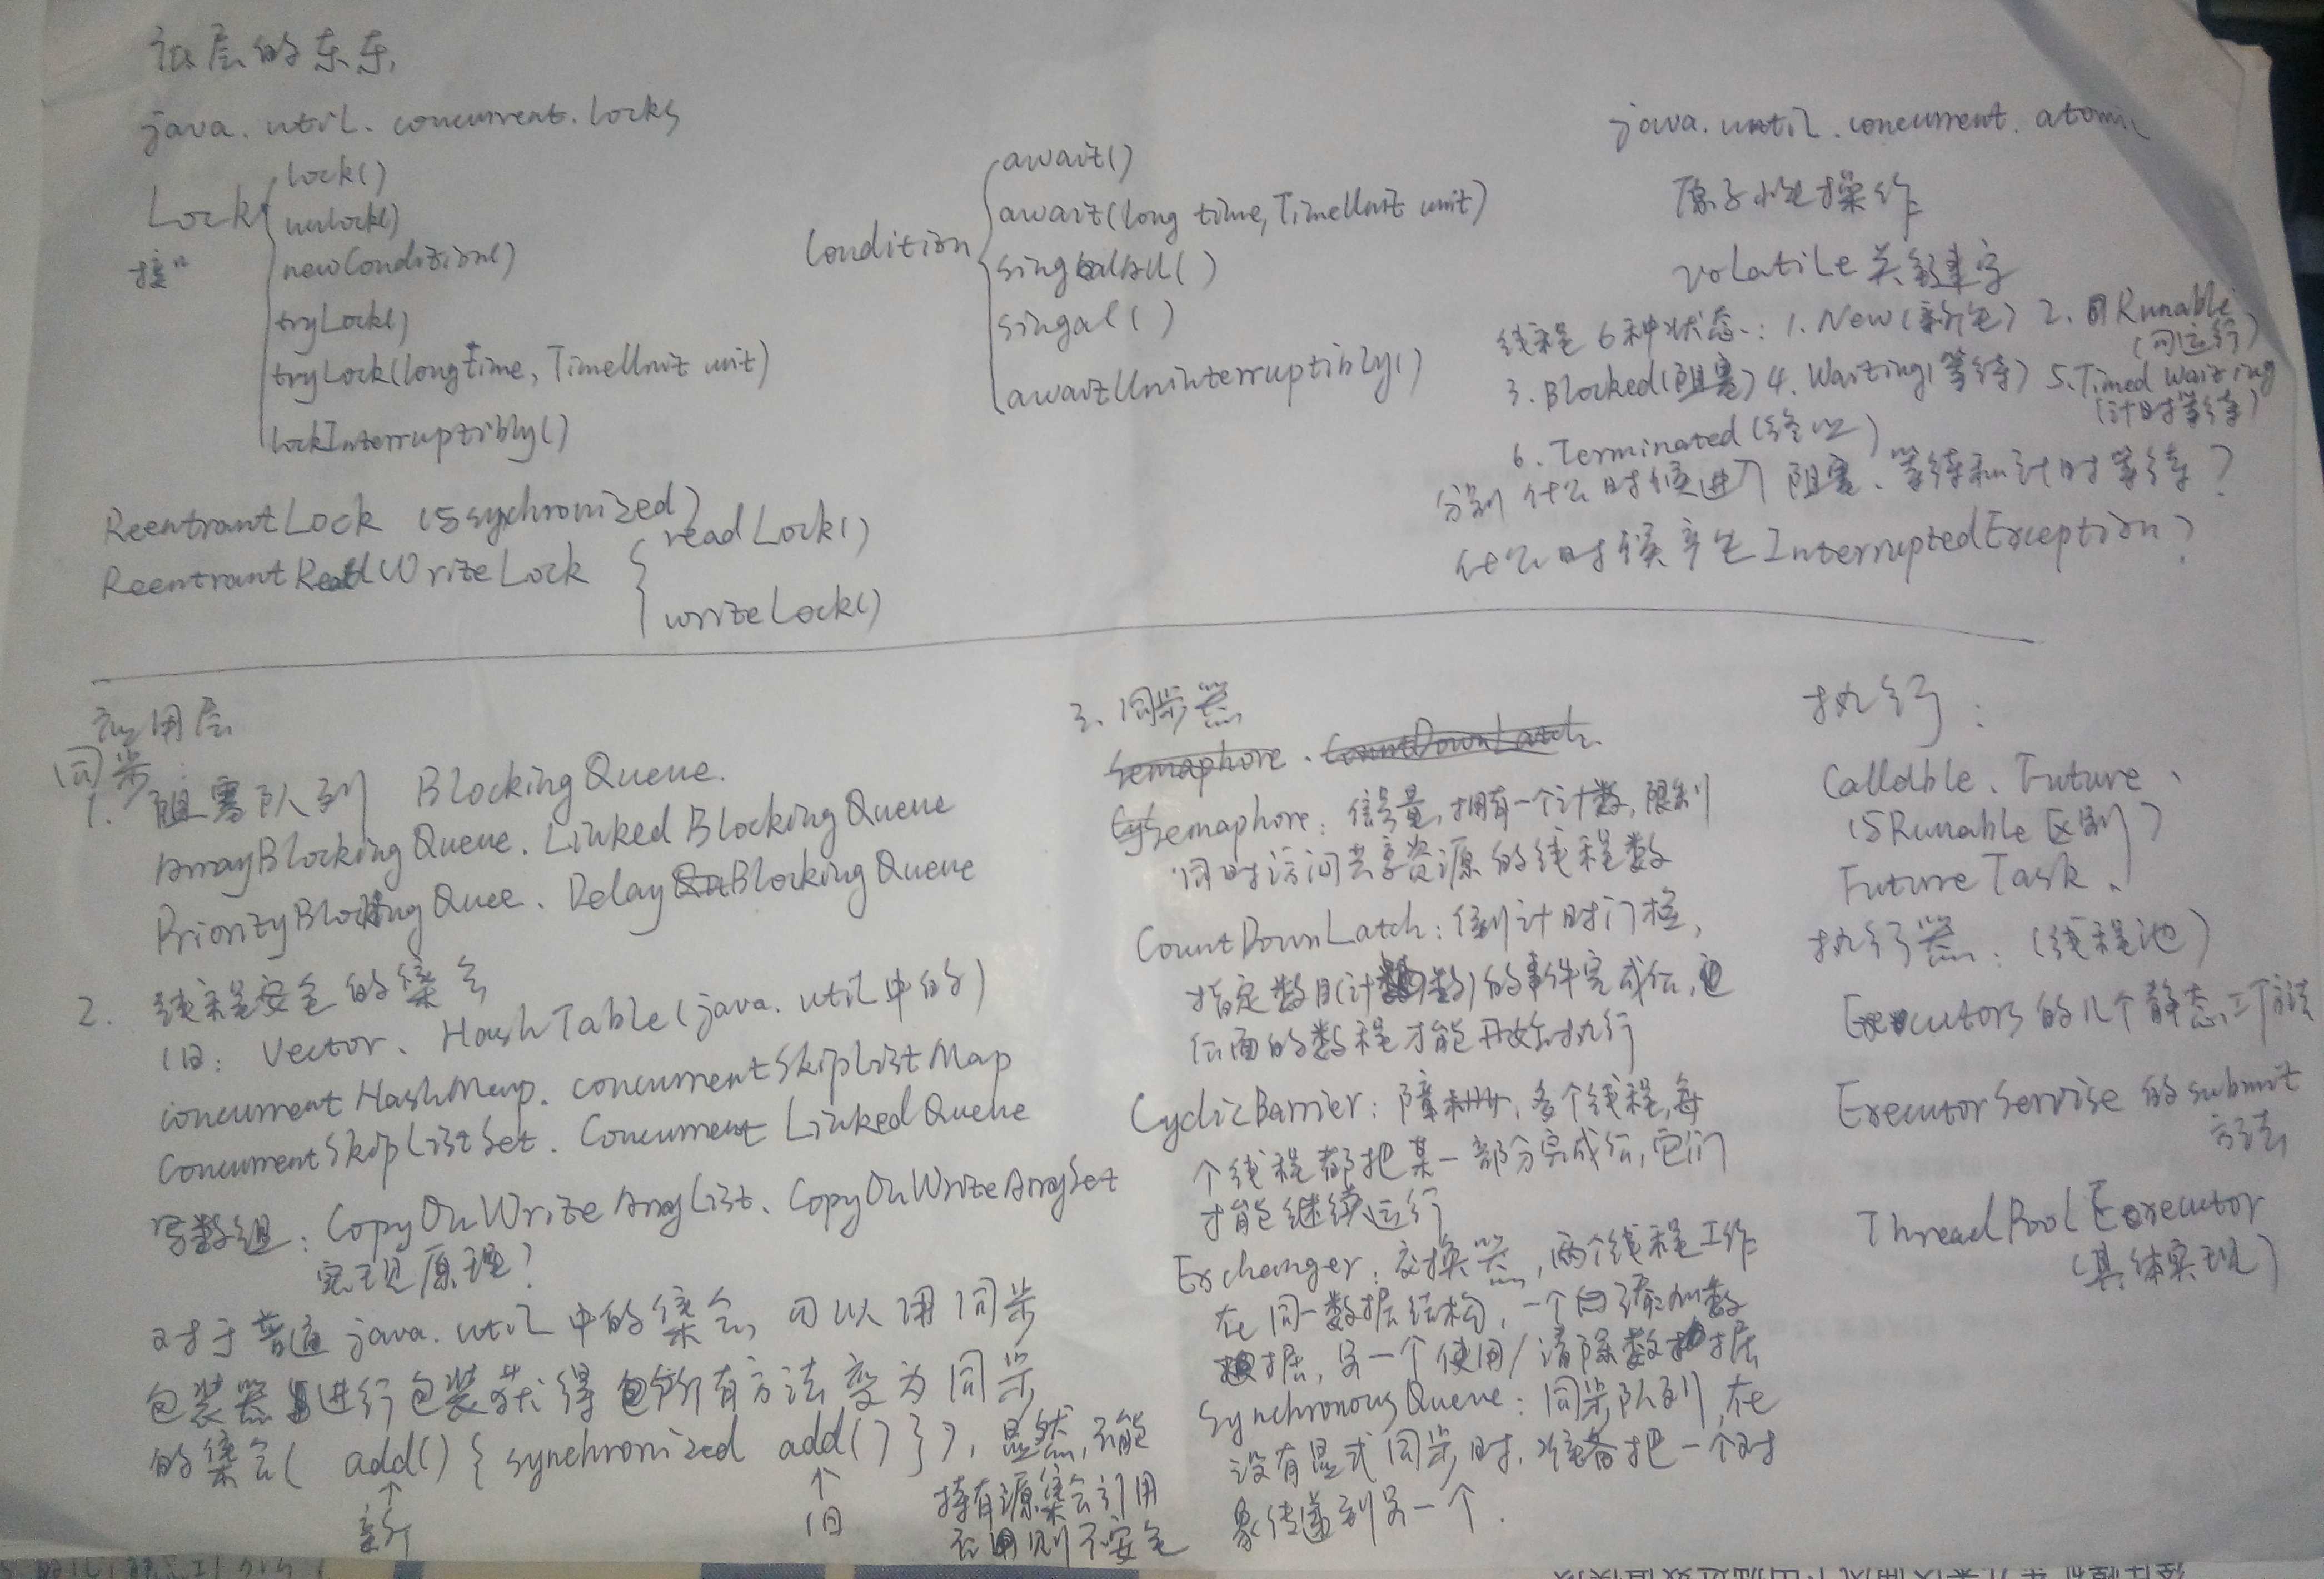 低层的东东
java.util.concurrent.locks
Lock
接口
lock()
unlock()
newCondition()
tryLock()
tryLock(long time, TimeUnit unit)
lockInterruptibly()
ReentrantLock (与sychronized)
ReentrantReadWriteLock
readLock()
writeLock()
Condition
await()
await(long time, TimeUnit unit)
singalAll()
singal()
awaitUninterruptibly()
java.until.concurrent.atomic
原子性操作
volatile关键字
线程6种状态: 1. New(新生) 2. Runable
(可运行)
3. Blocked(阻塞) 4. Waiting(等待) 5. Timed Waiting
(计时等待)
6. Terminated(终止)
分别什么时候进入阻塞、等待和计时等待?
什么时候产生InterruptedException?
应用层
同步:
1. 阻塞队列 BlockingQueue.
ArrayBlockingQueue、Linked BlockingQueue
PriorityBlockingQuee、DelayBlockingQueue
2. 线程安全的集合
旧: Vector、HashTable(java.util中的)
concurrentHashMap、concurrentSkipListMap
ConcurrentSkipListSet、Concurrent LinkedQueue
写数组: CopyOnWriteArrayList、CopyOnWriteArraySet
实现原理?
对于普通java.util中的集合,可以用同步
包装器进行包装获得所有方法变为同步
的集合( add() { synchronized add() } ), 显然,不能
↑ 新
↑ 旧
持有源集合引用
否则不安全
3. 同步器
Semaphore、CountDownLatch
Semaphore: 信号量,拥有一个计数,限制
同时访问共享资源的线程数
CountDownLatch: 倒计时门栓,
指定数目(计数)的事件完成后,
后面的线程才能开始执行
CyclicBarrier: 障栅,多个线程,每
个线程都把某一部分完成后,它们
才能继续运行
Exchanger: 交换器,两个线程工作
在同一数据结构,一个向添加数
据,另一个使用/清除数据
SynchronousQueue: 同步队列,在
没有显式同步时,准备把一个对
象传递到另一个.
执行:
Callable、Future、
(与Runable区别)
FutureTask、
执行器: (线程池)
Executors的几个静态工厂方法
ExecutorServise的submit
方法
ThreadPoolExecutor
(具体实现)